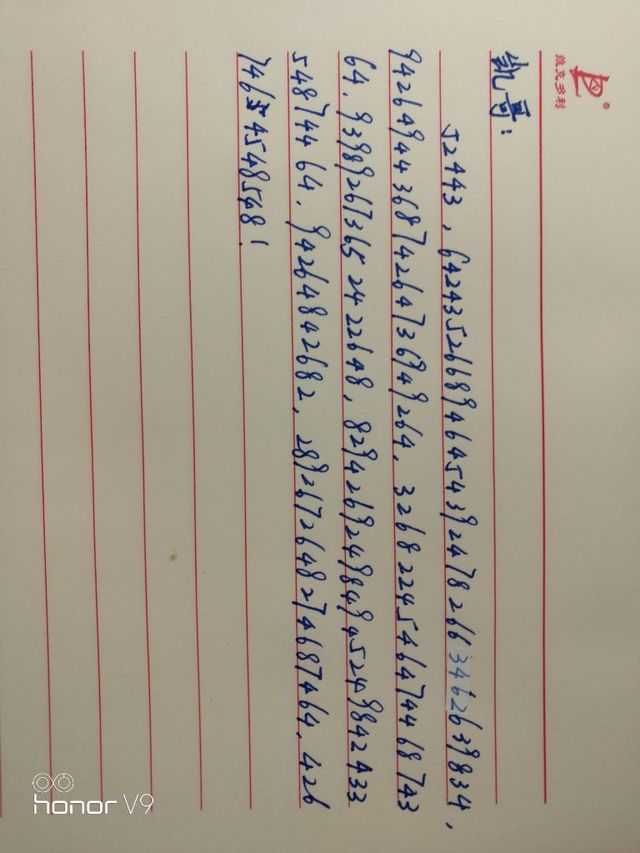 维克多利
凯哥：
52443，64243526689464543924782663462639834，
9426494436874264736949264，3268224546474468743
64．939892673652422648，829426924984945249842433
54874464．94264842682，2892672648274687464．426
74654548548！
honor V9